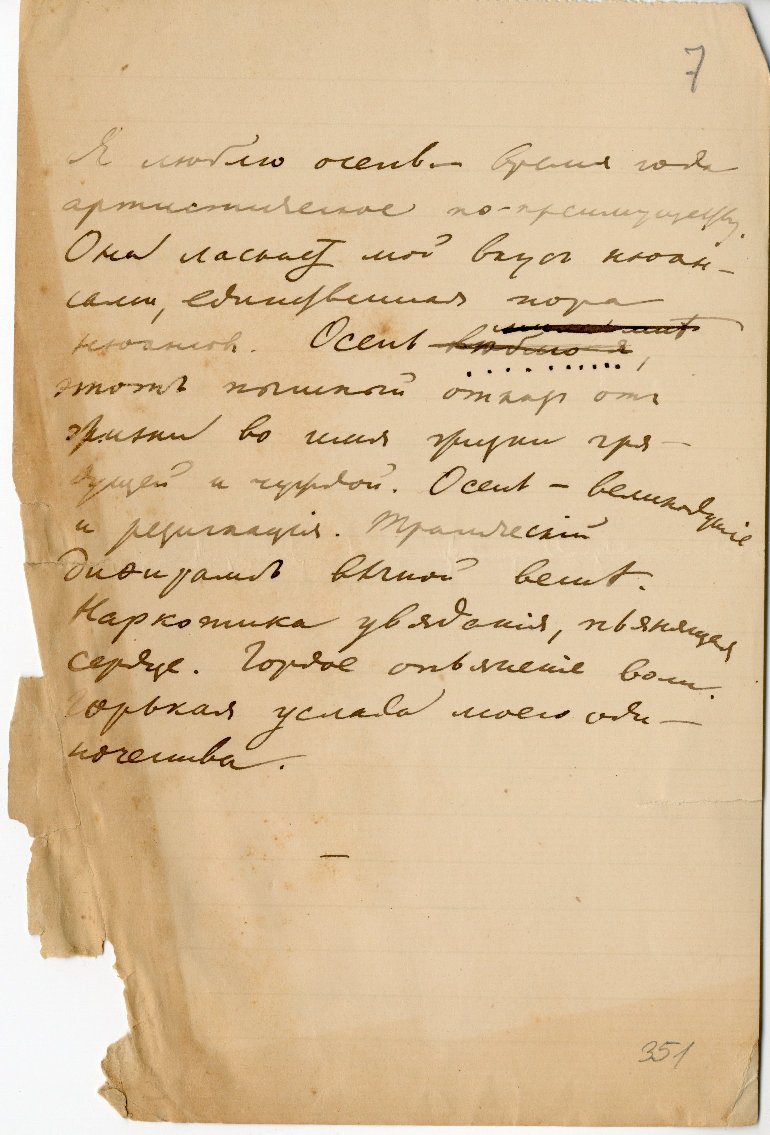 7
Я люблю осень — время года
артистическое по-преимуществу.
Она ласкает мой вкус нюан-
сами, единственная пора
нюансов. Осень люблю я,
этотъ пышный отказ отъ
жизни во имя жизни гря-
дущей и чуждой. Осень – великодушіе
и резигнація. Трагическій
дифирамбъ вѣчной веснѣ.
Наркотика увяданія, пьянящая
сердце. Гордое опьяненіе воли.
Горькая услада моего оди-
ночества.
351